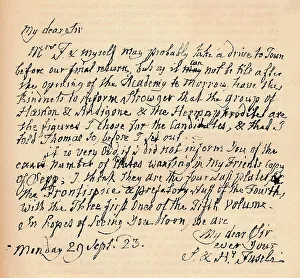 My dear Sir
Mrs F & myself may probably take a drive to Town
before our final return, but as it may not be till after
the opening of the Academy to morrow have the
kindness to inform Knowles that the group of
Haemon & Antigone & the Hermaphrodite are
the figures I chose for the candidates, & that I
told Thomas so before I set out.
it is very odd if I did not inform You of the
exact number of Plates wanting in my Friends Copy
of Sepp. I think they are the four last plates of
the Frontispice & prefatory Leaf of the Fourth,
with the Three first Ones of the Fifth Volume.
In Hopes of seeing You soon, we are
My dear Sir
ever Yours
S. & Hy Fuseli
Monday 29 Sept. 23.